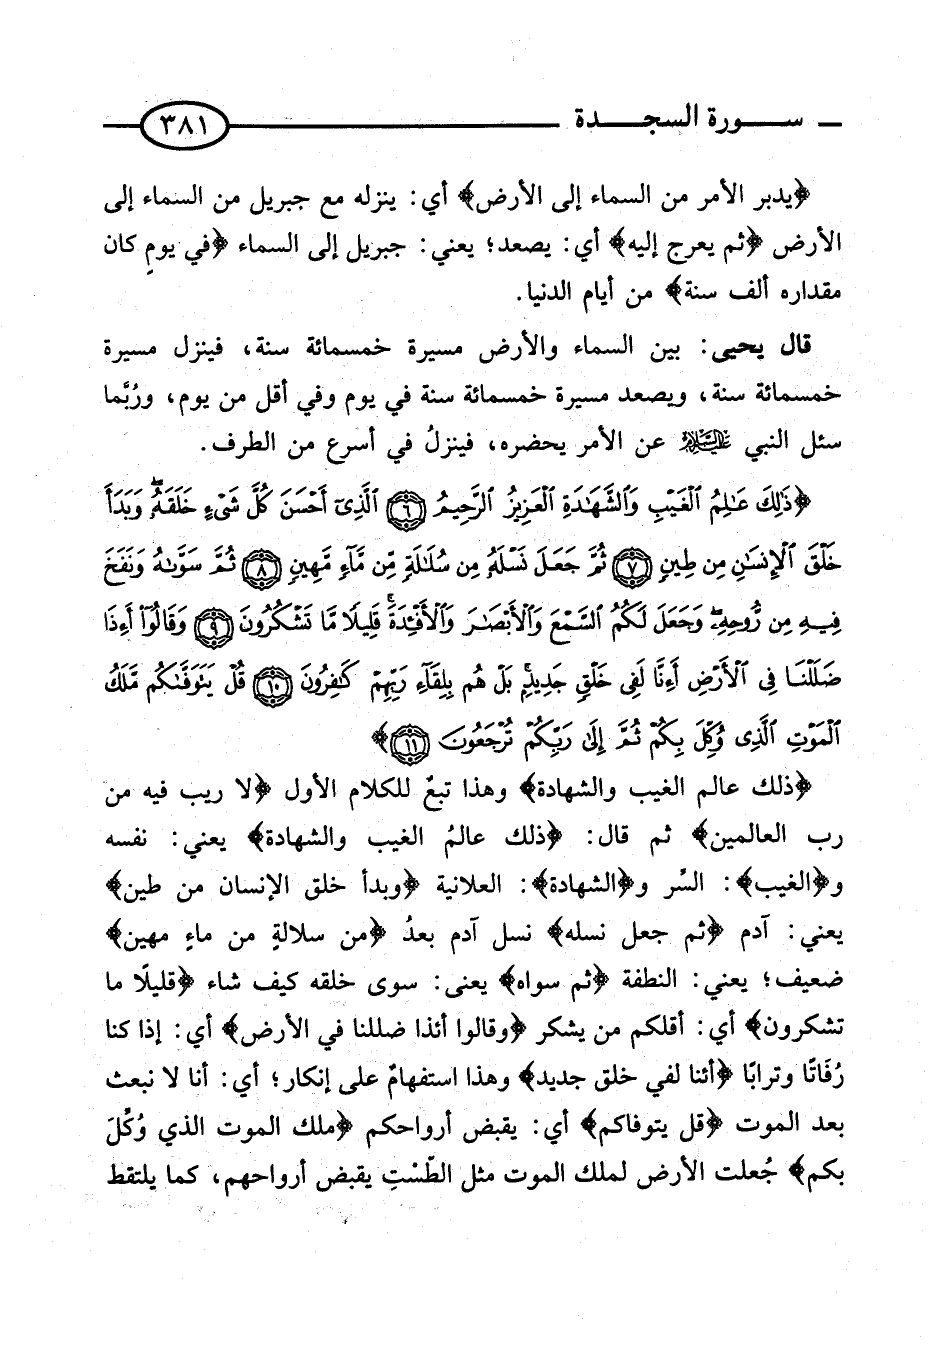 سورة السجدة ٣٨١
﴿يدبر الأمر من السماء إلى الأرض﴾ أي: ينزله مع جبريل من السماء إلى
الأرض ﴿ثم يعرج إليه﴾ أي: يصعد؛ يعني: جبريل إلى السماء ﴿في يومٍ كان
مقداره ألف سنة﴾ من أيام الدنيا.
قال يحيى: بين السماء والأرض مسيرة خمسمائة سنة، فينزل مسيرة
خمسمائة سنة، ويصعد مسيرة خمسمائة سنة في يوم وفي أقل من يوم، ورُبَّما
سئل النبي عليه السلام عن الأمر يحضره، فينزلُ في أسرع من الطرف.
﴿ذَٰلِكَ عَـٰلِمُ ٱلْغَيْبِ وَٱلشَّهَـٰدَةِ ٱلْعَزِيزُ ٱلرَّحِيمُ ٦ ٱلَّذِىٓ أَحْسَنَ كُلَّ شَىْءٍ خَلَقَهُۥ ۖ وَبَدَأَ
خَلْقَ ٱلْإِنسَـٰنِ مِن طِينٍ ٧ ثُمَّ جَعَلَ نَسْلَهُۥ مِن سُلَـٰلَةٍ مِّن مَّآءٍ مَّهِينٍ ٨ ثُمَّ سَوَّىٰهُ وَنَفَخَ
فِيهِ مِن رُّوحِهِۦ ۖ وَجَعَلَ لَكُمُ ٱلسَّمْعَ وَٱلْأَبْصَـٰرَ وَٱلْأَفْـِٔدَةَ ۚ قَلِيلًا مَّا تَشْكُرُونَ ٩ وَقَالُوٓا۟ أَءِذَا
ضَلَلْنَا فِى ٱلْأَرْضِ أَءِنَّا لَفِى خَلْقٍ جَدِيدٍۭ ۚ بَلْ هُم بِلِقَآءِ رَبِّهِمْ كَـٰفِرُونَ ١٠ قُلْ يَتَوَفَّىٰكُم مَّلَكُ
ٱلْمَوْتِ ٱلَّذِى وُكِّلَ بِكُمْ ثُمَّ إِلَىٰ رَبِّكُمْ تُرْجَعُونَ ١١﴾
﴿ذلك عالم الغيب والشهادة﴾ وهذا تبعٌ للكلام الأول ﴿لا ريب فيه من
رب العالمين﴾ ثم قال: ﴿ذلك عالمُ الغيب والشهادة﴾ يعني: نفسه
و﴿الغيب﴾: السِّر و﴿الشهادة﴾: العلانية ﴿وبدأ خلق الإنسان من طين﴾
يعني: آدم ﴿ثم جعل نسله﴾ نسل آدم بعدُ ﴿من سلالةٍ من ماءٍ مهين﴾
ضعيف؛ يعني: النطفة ﴿ثم سواه﴾ يعنى: سوى خلقه كيف شاء ﴿قليلًا ما
تشكرون﴾ أي: أقلكم من يشكر ﴿وقالوا أئذا ضللنا في الأرض﴾ أي: إذا كنا
رُفَاتًا وترابًا ﴿أئنا لفي خلق جديد﴾ وهذا استفهامٌ على إنكار؛ أي: أنا لا نبعث
بعد الموت ﴿قل يتوفاكم﴾ أي: يقبض أرواحكم ﴿ملك الموت الذي وُكِّلَ
بكم﴾ جُعلت الأرض لملك الموت مثل الطّسْتِ يقبض أرواحهم، كما يلتقط